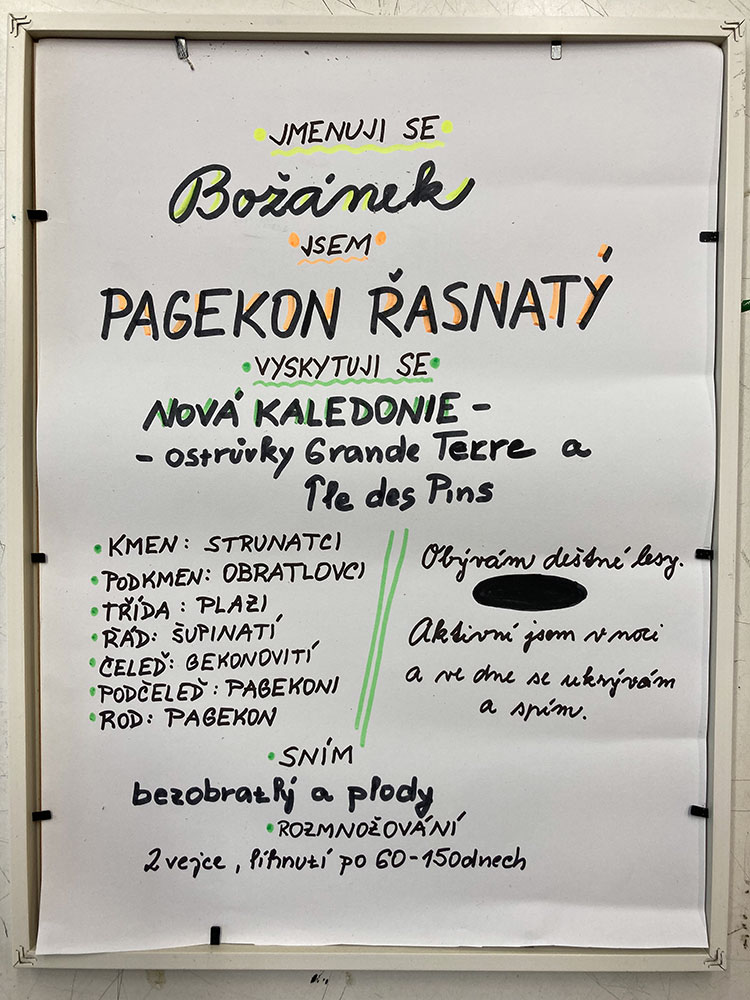 JMENUJI SE
Božánek
JSEM
PAGEKON ŘASNATÝ
VYSKYTUJI SE
NOVÁ KALEDONIE -
- ostrůvky Grande Terre a
Île des Pins
• KMEN: STRUNATCI
• PODKMEN: OBRATLOVCI
• TŘÍDA: PLAZI
• ŘÁD: ŠUPINATÍ
• ČELEĎ: GEKONOVITÍ
• PODČELEĎ: PAGEKONI
• ROD: PAGEKON
Obývám deštné lesy.
Aktivní jsem v noci
a ve dne se ukrývám
a spím.
• SNÍM
bezobratlý a plody
• ROZMNOŽOVÁNÍ
2 vejce, líhnutí po 60-150 dnech